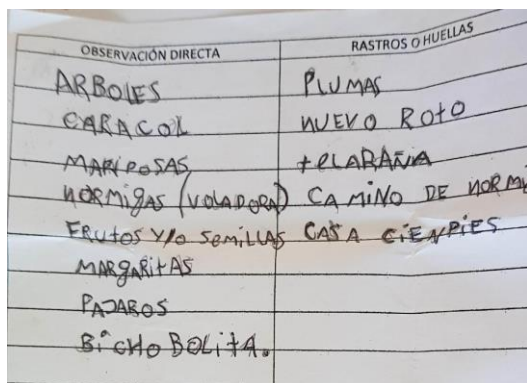 OBSERVACIÓN DIRECTA RASTROS O HUELLAS
ARBOLES PLUMAS
CARACOL HUEVO ROtO
MARIPOSAS tELARAÑA
HORMiGAS (VOLADORA) CAMiNO DE HORMi
FRUtOS Y/O SEMiLLAS CASA CiENPiES
MARGARitAS
PAJAROS
BiCHO BOLitA.